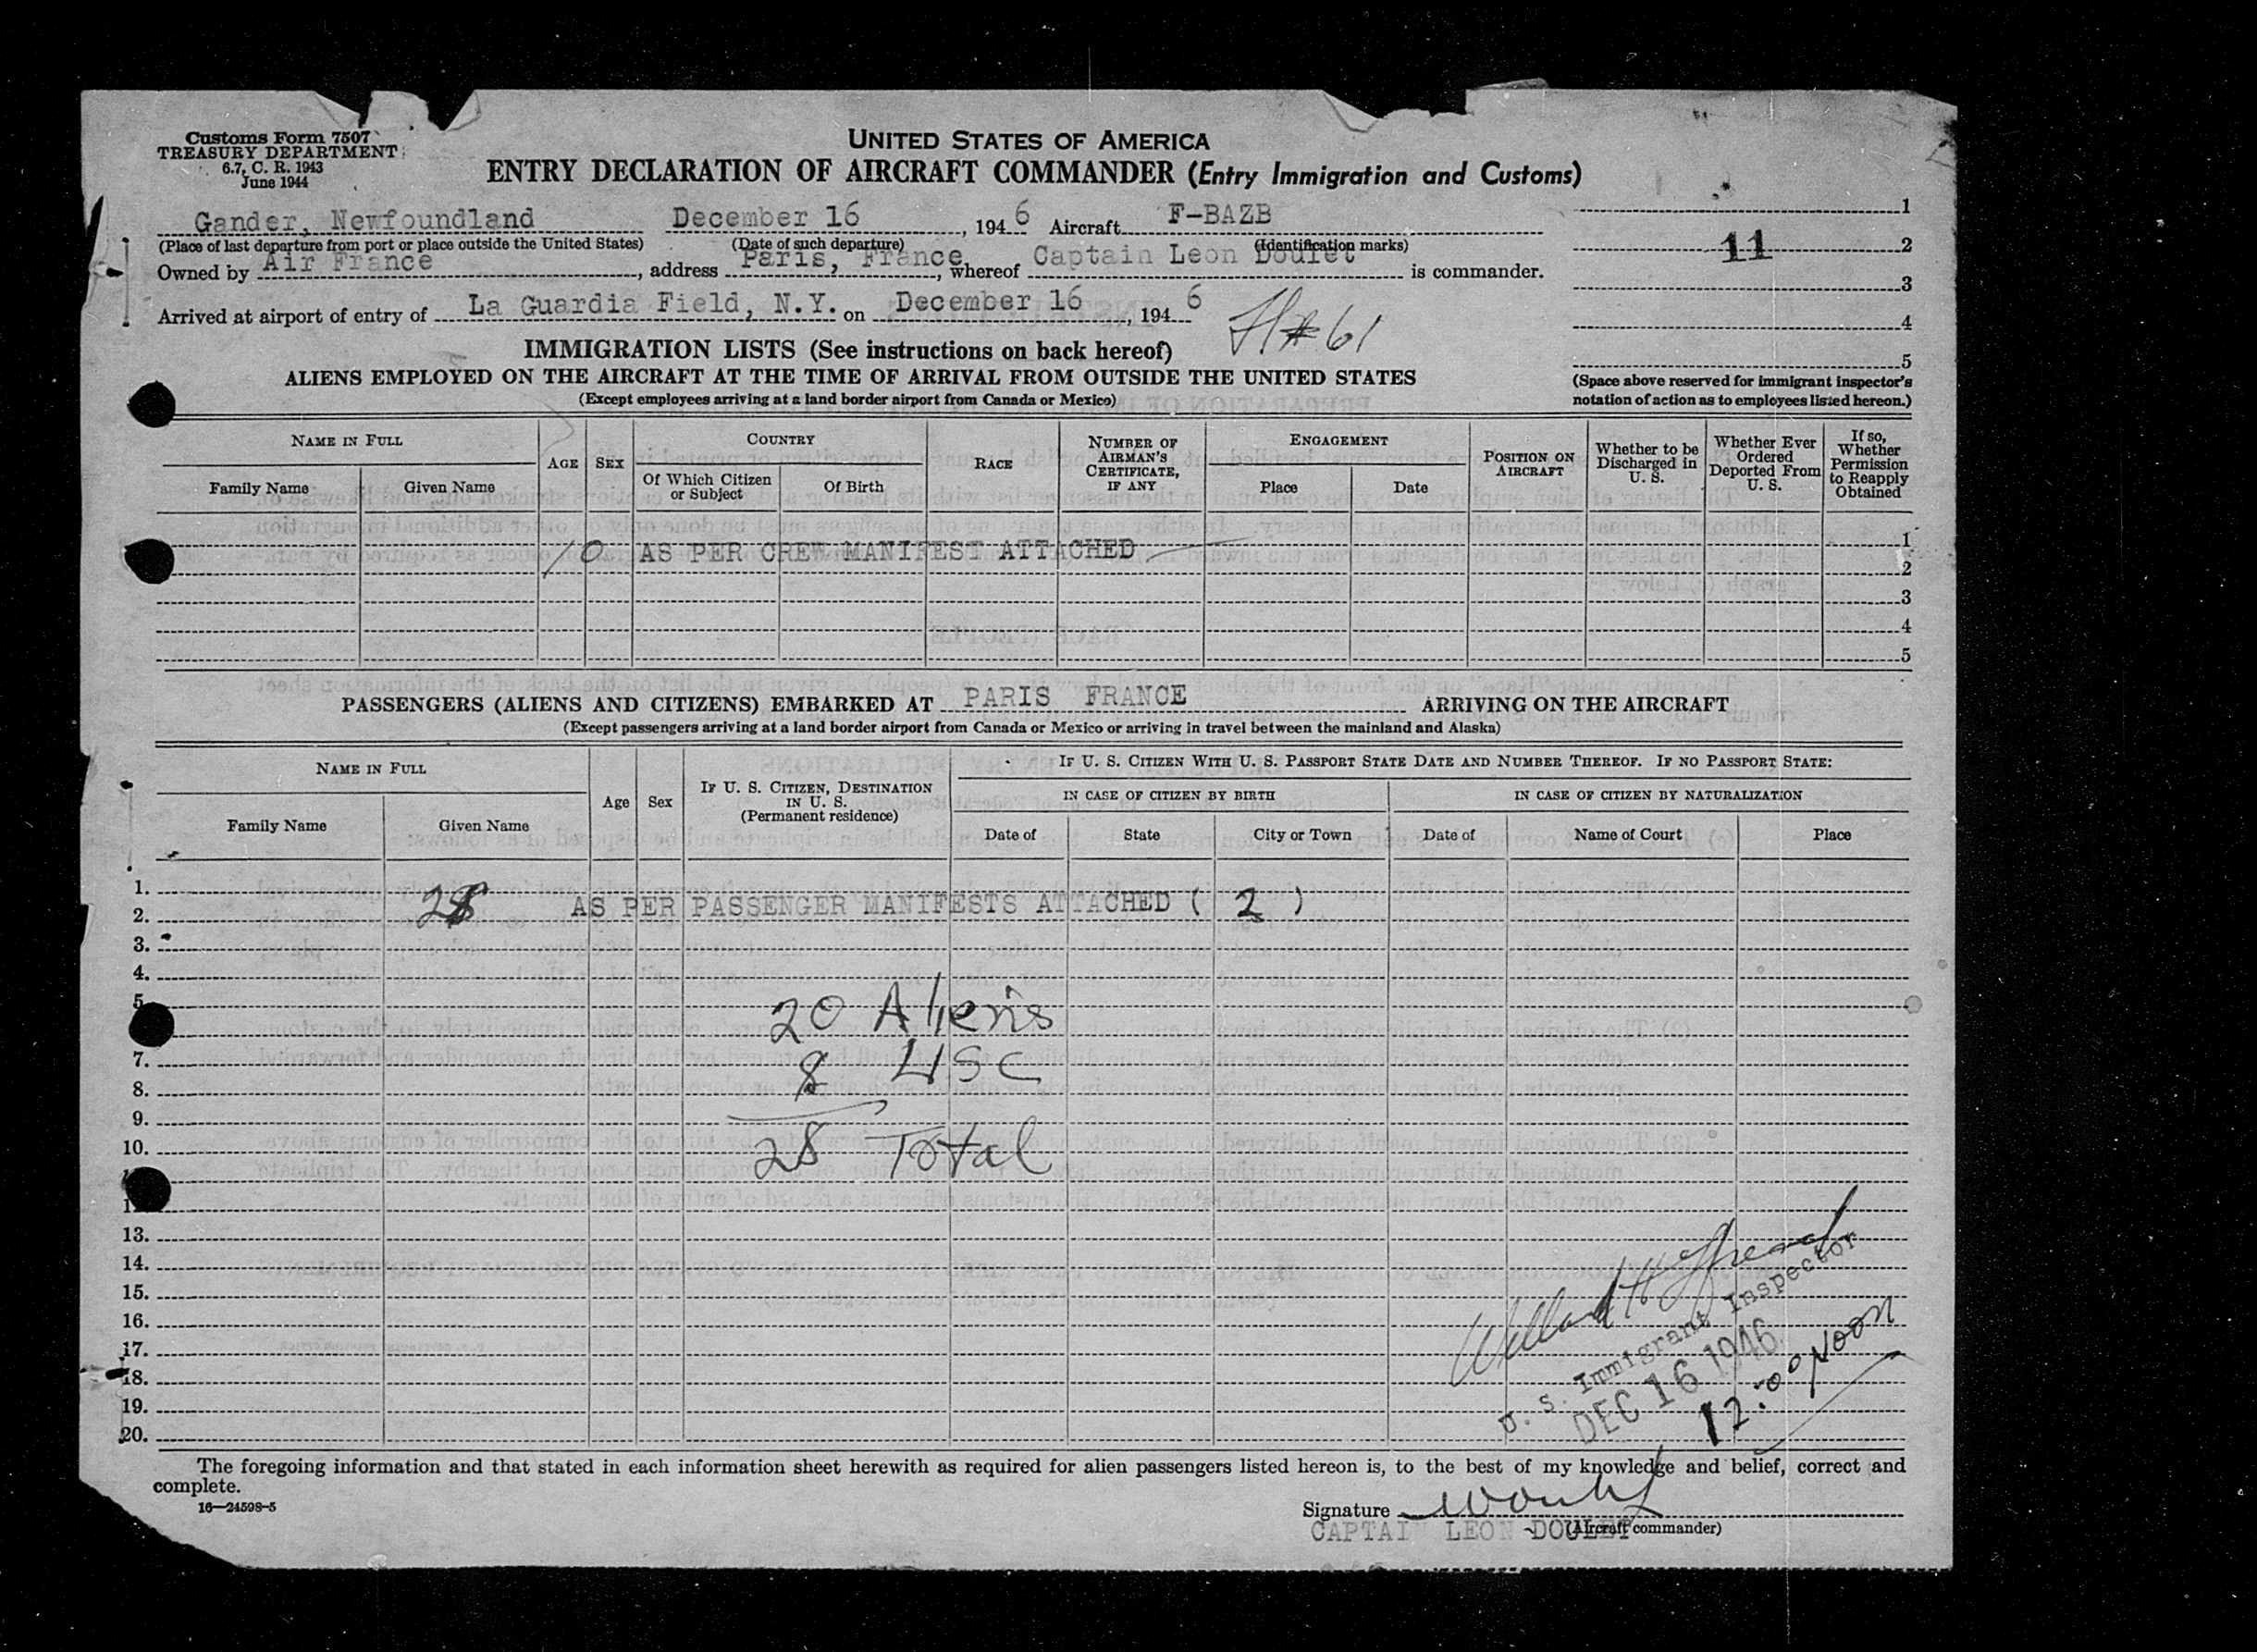 Customs Form 7507
TREASURY DEPARTMENT
6.7, C. R. 1943
June 1944
UNITED STATES OF AMERICA
ENTRY DECLARATION OF AIRCRAFT COMMANDER (Entry Immigration and Customs)
Gander, Newfoundland December 16, 1946 Aircraft F-BAZB
(Place of last departure from port or place outside the United States) (Date of such departure) (Identification marks)
Owned by Air France, address Paris, France, whereof Captain Leon Doulet is commander.
Arrived at airport of entry of La Guardia Field, N.Y. on December 16, 1946
1
11 2
3
4
5
(Space above reserved for immigrant inspector's
notation of action as to employees listed hereon.)
#61
IMMIGRATION LISTS (See instructions on back hereof)
ALIENS EMPLOYED ON THE AIRCRAFT AT THE TIME OF ARRIVAL FROM OUTSIDE THE UNITED STATES
(Except employees arriving at a land border airport from Canada or Mexico)
NAME IN FULL
Family Name Given Name
AGE SEX
COUNTRY
Of Which Citizen or Subject Of Birth
RACE
NUMBER OF AIRMAN'S CERTIFICATE, IF ANY
ENGAGEMENT
Place Date
POSITION ON AIRCRAFT
Whether to be Discharged in U. S.
Whether Ever Ordered Deported From U. S.
If so, Whether Permission to Reapply Obtained
1
10 AS PER CREW MANIFEST ATTACHED
2
3
4
5
PASSENGERS (ALIENS AND CITIZENS) EMBARKED AT PARIS FRANCE ARRIVING ON THE AIRCRAFT
(Except passengers arriving at a land border airport from Canada or Mexico or arriving in travel between the mainland and Alaska)
NAME IN FULL
Family Name Given Name
Age Sex
IF U. S. CITIZEN, DESTINATION IN U. S. (Permanent residence)
IF U. S. CITIZEN WITH U. S. PASSPORT STATE DATE AND NUMBER THEREOF. IF NO PASSPORT STATE:
IN CASE OF CITIZEN BY BIRTH IN CASE OF CITIZEN BY NATURALIZATION
Date of State City or Town Date of Name of Court Place
1.
2. 28 AS PER PASSENGER MANIFESTS ATTACHED ( 2 )
3.
4.
5.
20 Aliens
7. 8 USC
8.
9.
10. 28 Total
13.
14.
15.
16.
17.
18.
19.
20.
U. S. Immigrant Inspector
DEC 16 1946
12:00 Noon
The foregoing information and that stated in each information sheet herewith as required for alien passengers listed hereon is, to the best of my knowledge and belief, correct and
complete.
16—24598-5
Signature
(Aircraft commander)
CAPTAI LEON DOULET